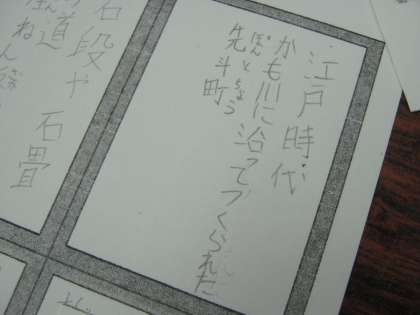 江戸時代
かも川に沿ってつくられた
ぽんとちょう
先斗町
石段や石畳
道
ねん